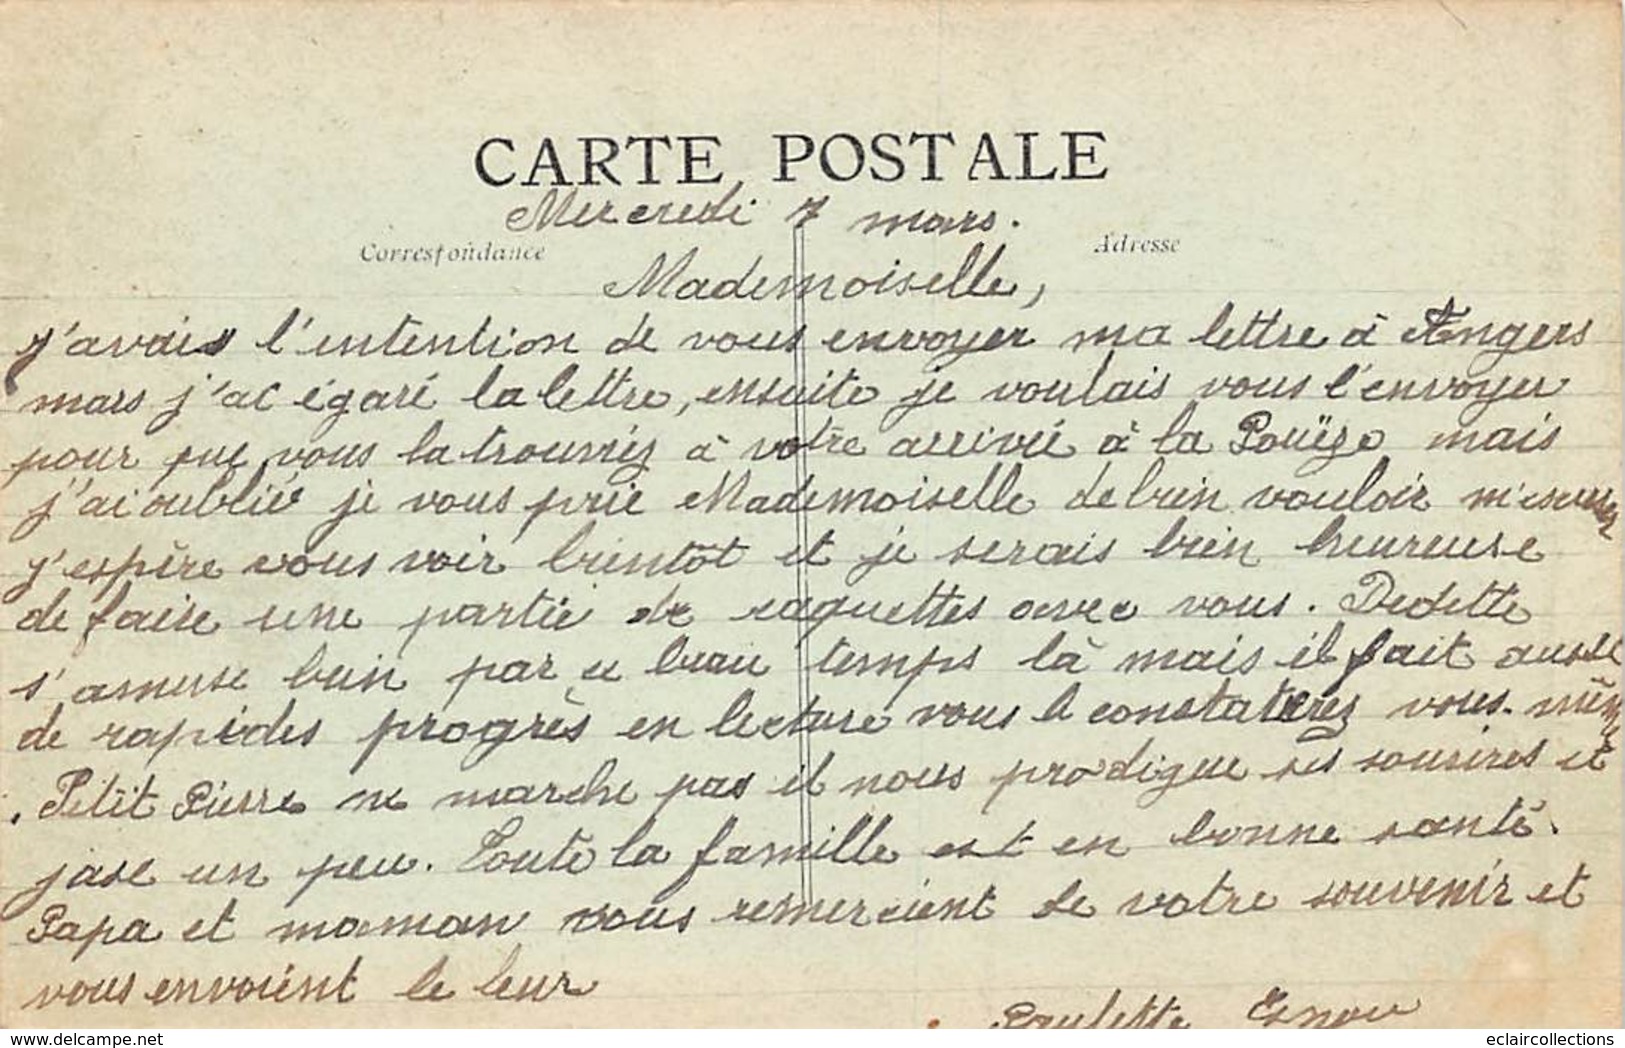 CARTE POSTALE
Mercredi 7 mars.
Correspondance
Adresse
Mademoiselle,
j'avais l'intention de vous envoyer ma lettre à Angers
mais j'ai égaré la lettre, ensuite je voulais vous l'envoyer
pour que vous la trouviez à votre arrivée à la Pouëze mais
j'ai oublié je vous prie Mademoiselle de bien vouloir m'excuser
j'espère vous voir bientôt et je serais bien heureuse
de faire une partie de raquettes avec vous. Dedette
s'amuse bien par ce beau temps là mais il fait aussi
de rapides progrès en lecture vous le constaterez vous-même
. Petit Pierre ne marche pas il nous prodigue ses sourires et
jase un peu. Toute la famille est en bonne santé.
Papa et maman vous remercient de votre souvenir et
vous envoient le leur
Paulette
eclaircollections